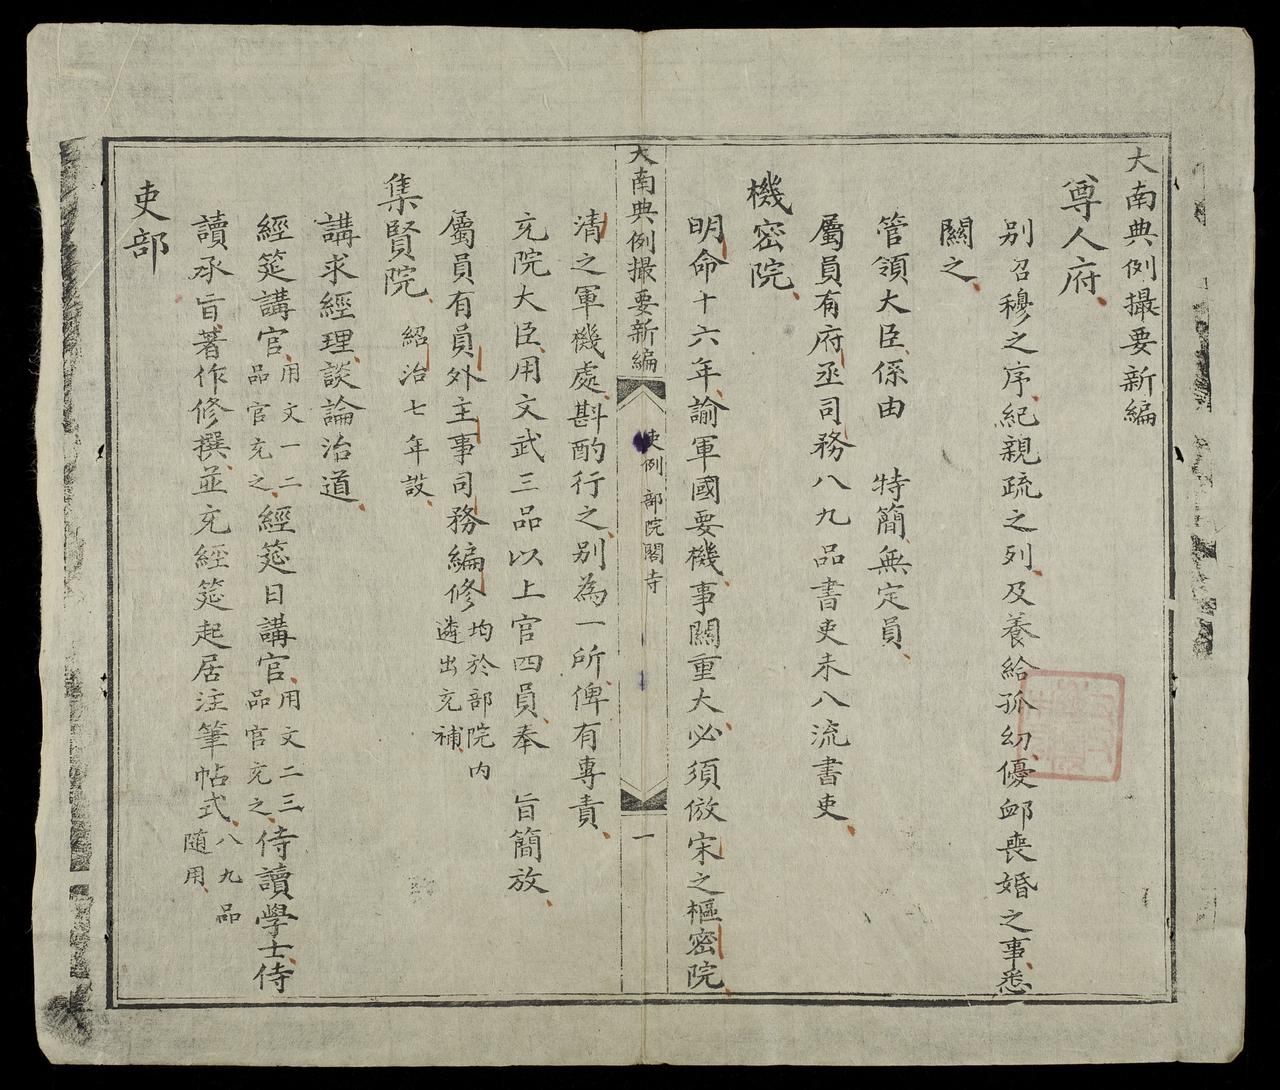 大南典例撮要新編
尊人府
别召穆之序紀親疏之列及養給孤幼優邺喪婚之事悉
關之
管領大臣係由 特簡無定員
屬員有府丞司務八九品書吏未八流書吏
機密院
明命十六年諭軍國要機事關重大必須倣宋之樞密院
大南典例撮要新編 吏例 部院閣寺 一
清之軍機處斟酌行之别為一所俾有專責
充院大臣用文武三品以上官四員奉 旨簡放
屬員有員外主事司務編修均於部院内遴出充補
集賢院 紹治七年設
講求經理談論治道
經筵講官用文一二品官充之經筵日講官用文二三品官充之侍讀學士侍
讀承旨著作修撰並充經筵起居注筆帖式八九品随用
吏部